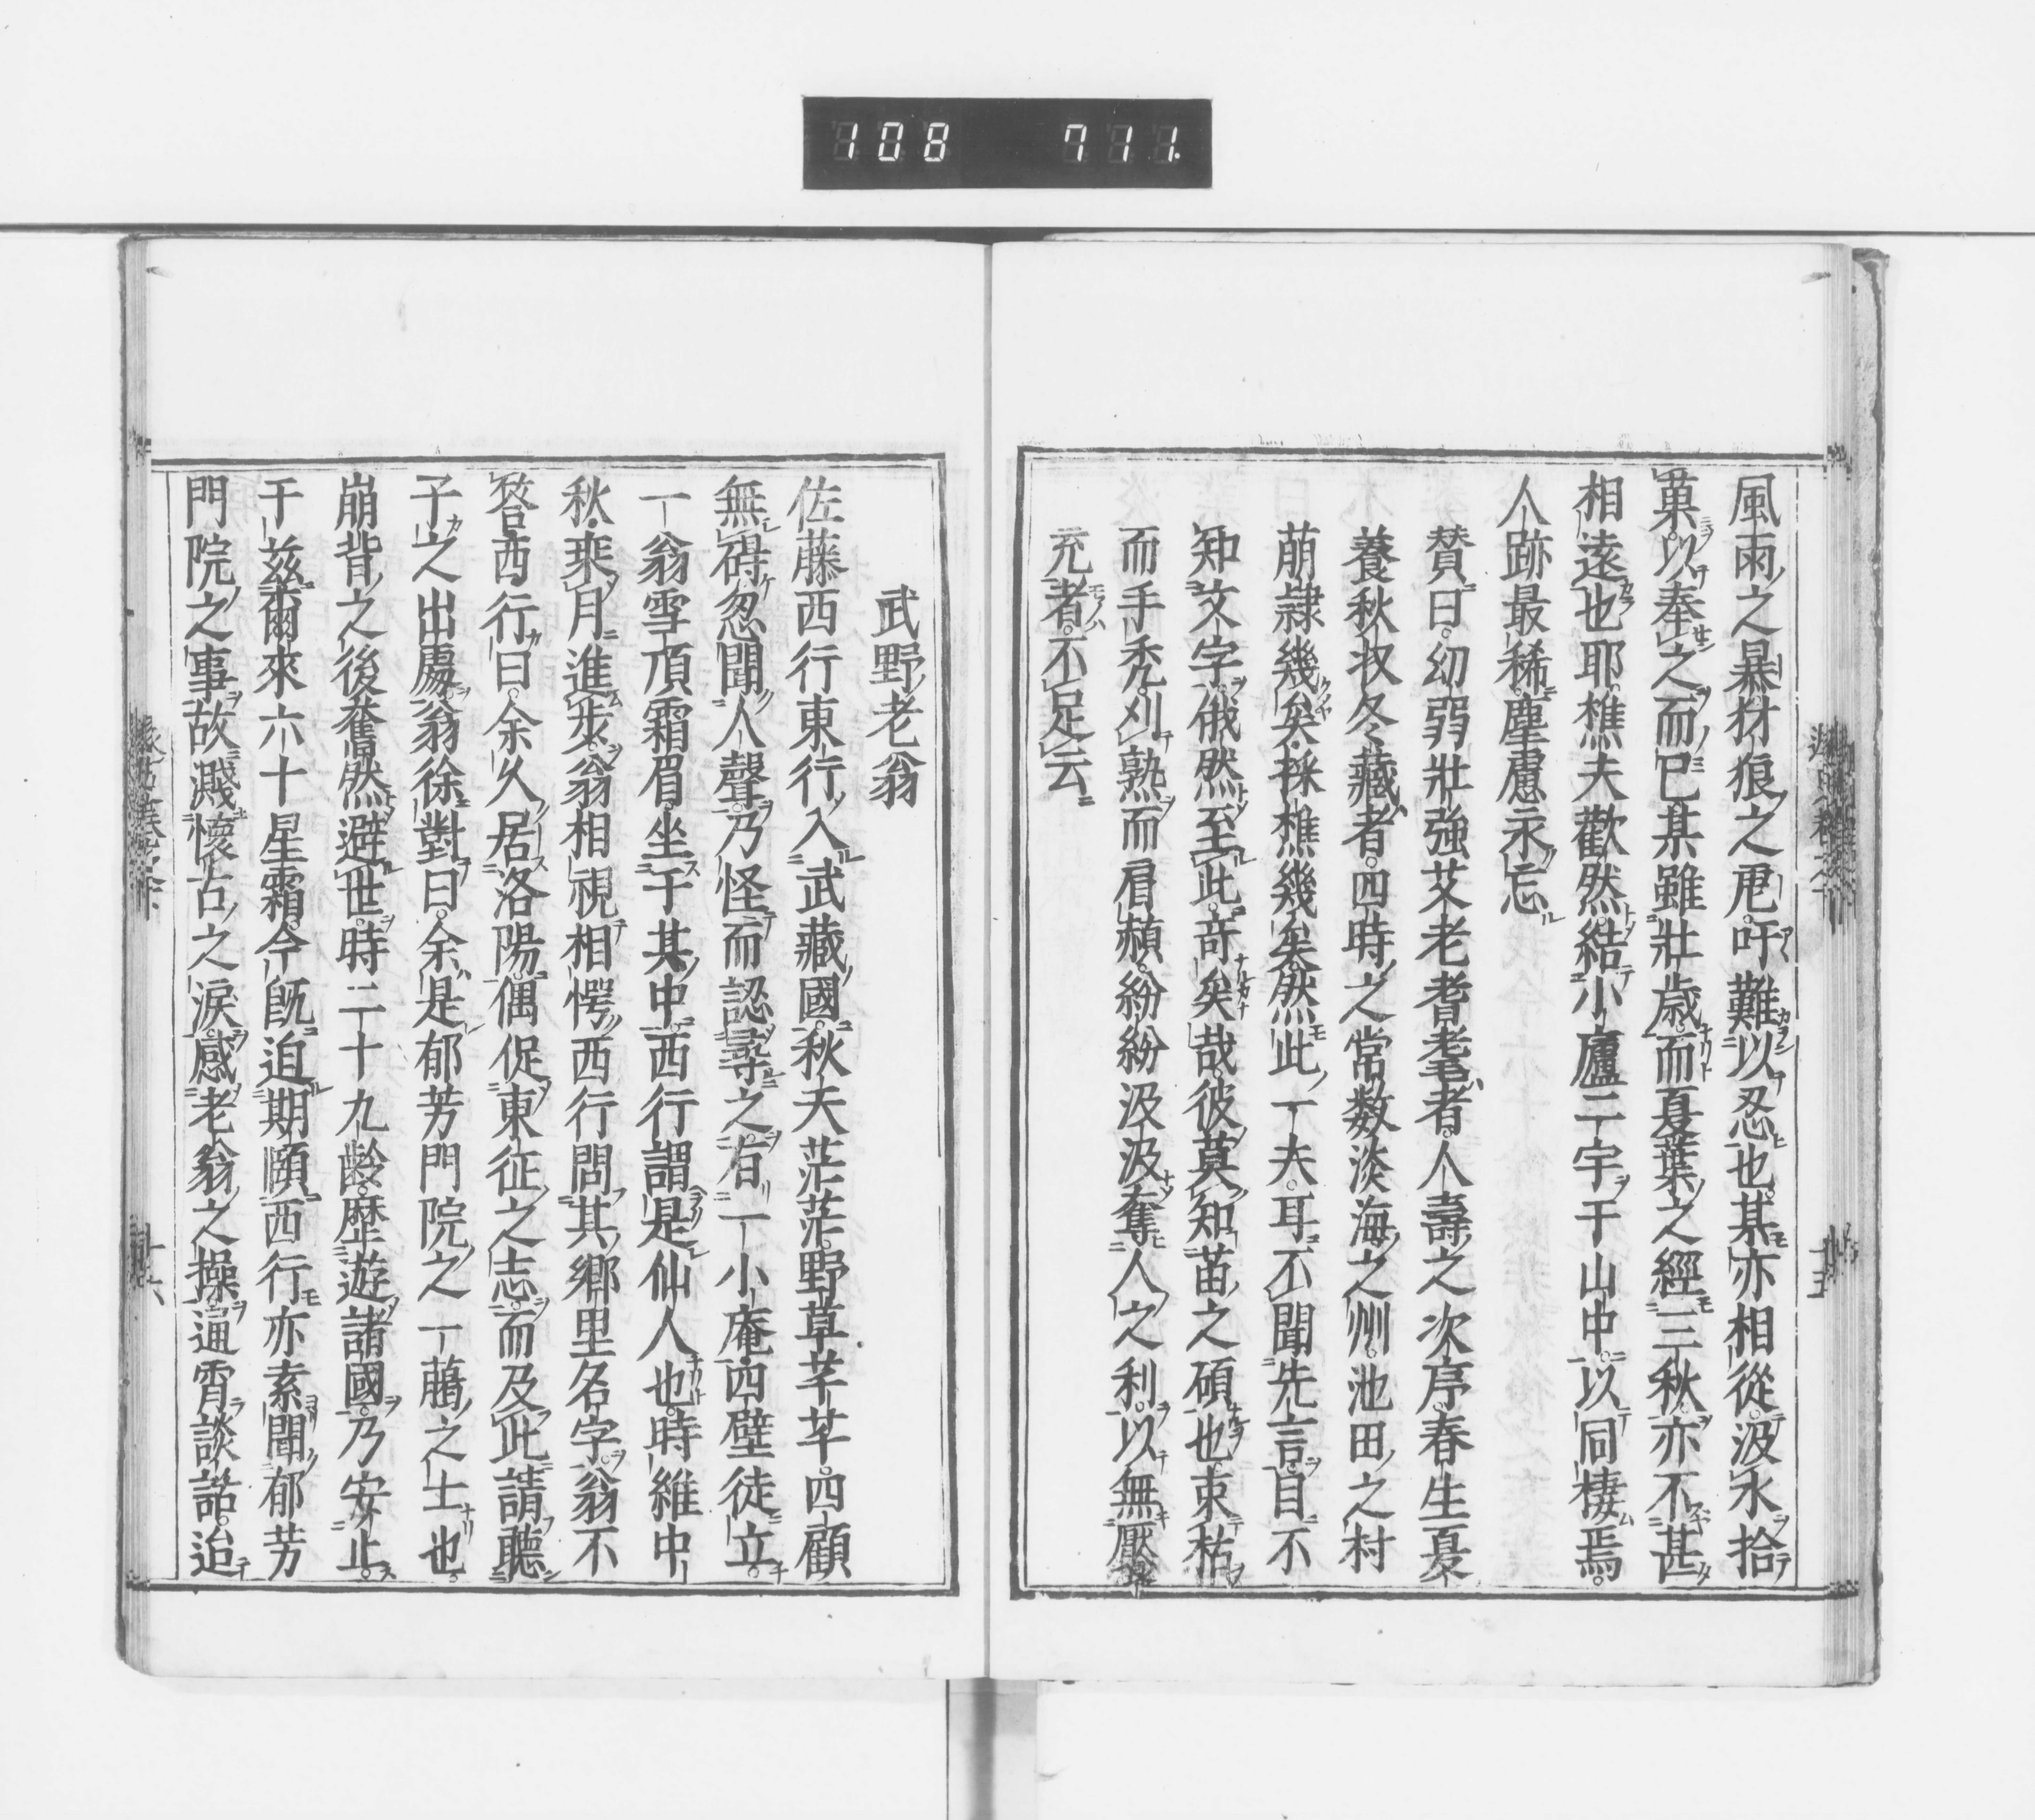 108 711.
風雨之暴豺狼之暴吁難以忍也某亦相從汲水拾
菓以奉之而已某雖壯歳而夏葉之經三秋亦不甚
相遠也耶樵夫歡然結小廬二宇于山中以同棲焉
人跡最稀塵慮永忘
賛曰幼弱壯強艾老耆耄者人壽之次序春生夏
養秋收冬藏者四時之常数淡海之州池田之村
萠隷幾矣採樵幾矣然此一夫耳不聞先言目不
知文字俄然至此奇矣哉彼莫知苗之碩也束秸
而手禿刈熟而肩赬紛紛汲汲奪人之利以無厭
充者不足云
武野老翁
佐藤西行東行入武藏國秋天茫茫野草芊芊四顧
無碍忽聞人聲乃怪而認尋之右一小庵四壁徒立
一翁雪頂霜眉坐于其中西行謂是仙人也時維中
秋乘月進步翁相視相愕西行問其郷里名字翁不
答西行曰余久居洛陽偶促東征之志而及此請聽
子之出處翁徐對曰余是郁芳門院之一﨟之士也
崩背之後奮然避世時二十九齡歴遊諸國乃安止
于茲爾來六十星霜今既迫期頤西行亦素聞郁芳
門院之事故濺懷古之涙感老翁之操逼霄談話迨